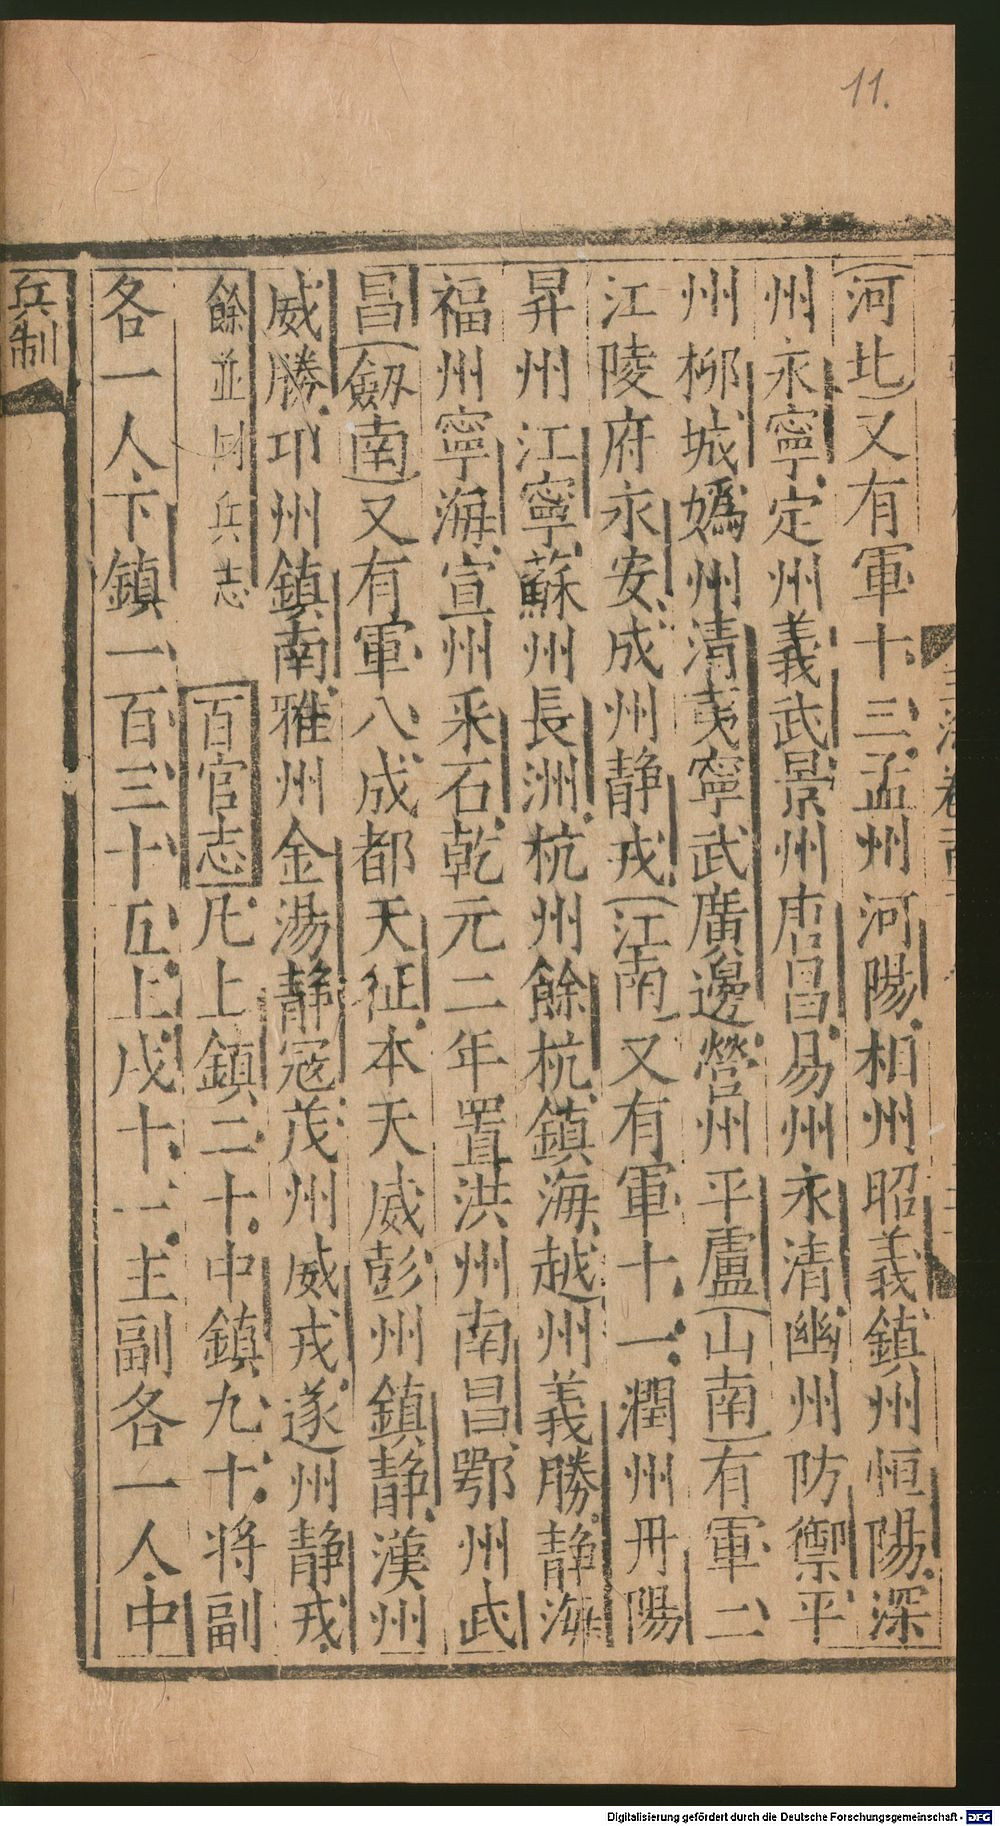 11.
河北又有軍十三孟州河陽相州昭義鎮州恒陽深
州永寧定州義武景州唐昌易州永清幽州防禦平
州柳城嬀州清夷寧武廣邊營州平盧山南有軍二
江陵府永安成州静戎江南又有軍十一潤州丹陽
昇州江寧蘇州長洲杭州餘杭鎮海越州義勝静海
福州寧海宣州采石乾元二年置洪州南昌鄂州武
昌劔南又有軍八成都天征本天威彭州鎮静漢州
威勝邛州鎮南雅州金湯静寇茂州威戎遂州静戎
餘並同兵志 百官志凡上鎮二十中鎮九十將副
各一人下鎮一百三十五上戍十一主副各一人中
兵制
Digitalisierung gefördert durch die Deutsche Forschungsgemeinschaft - DFG